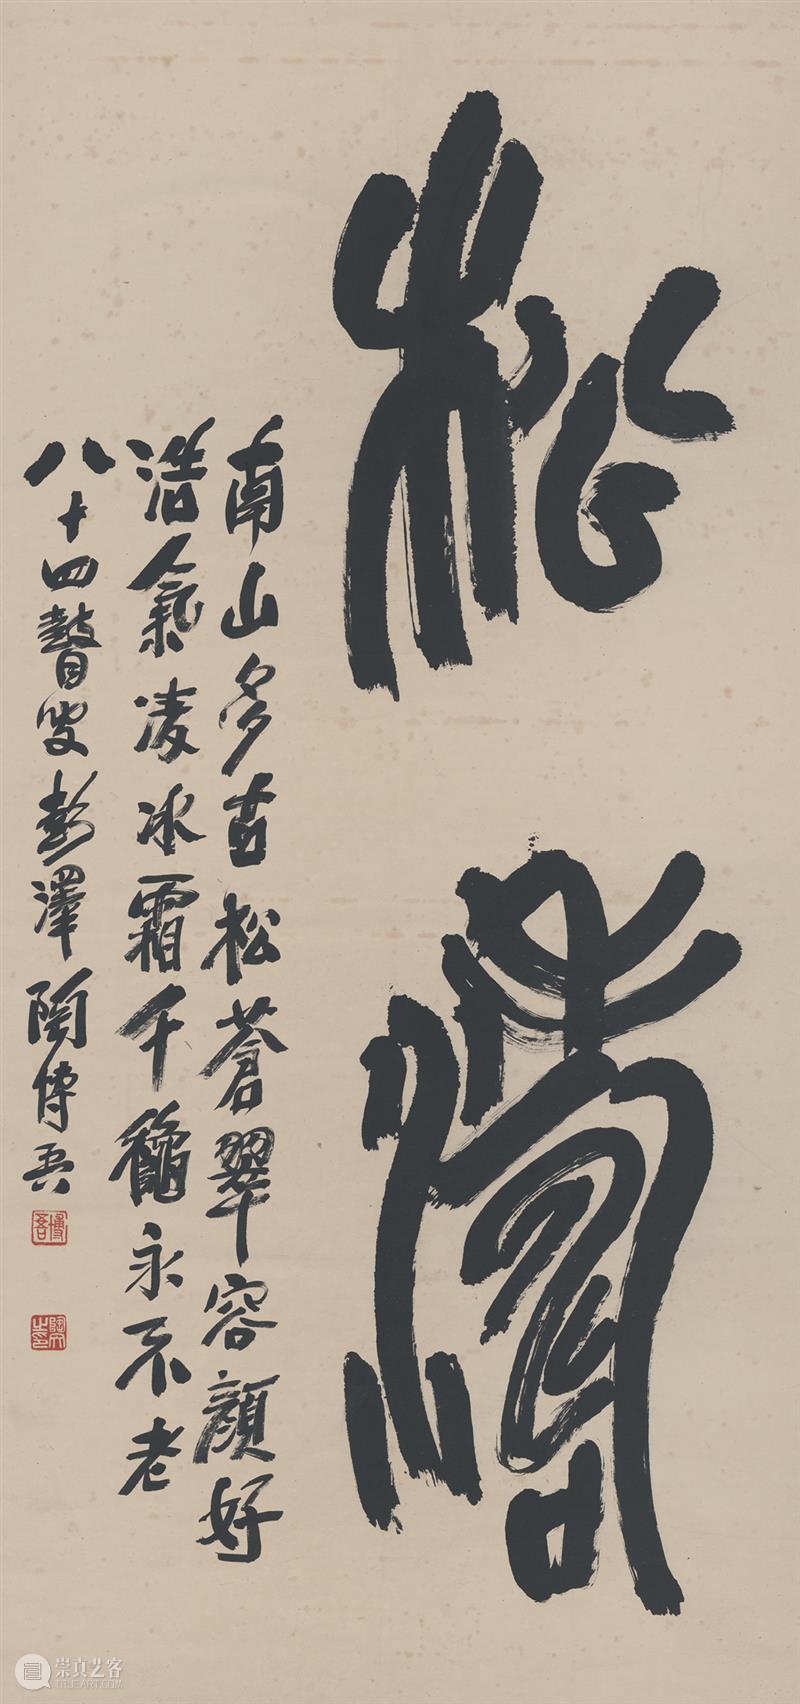 松濤
南山多古松蒼翠容顏好
浩氣凌冰霜千龝永不老
八十四瞽叟彭澤陶博吾
博吾
崇真艺客
TRUEART.COM